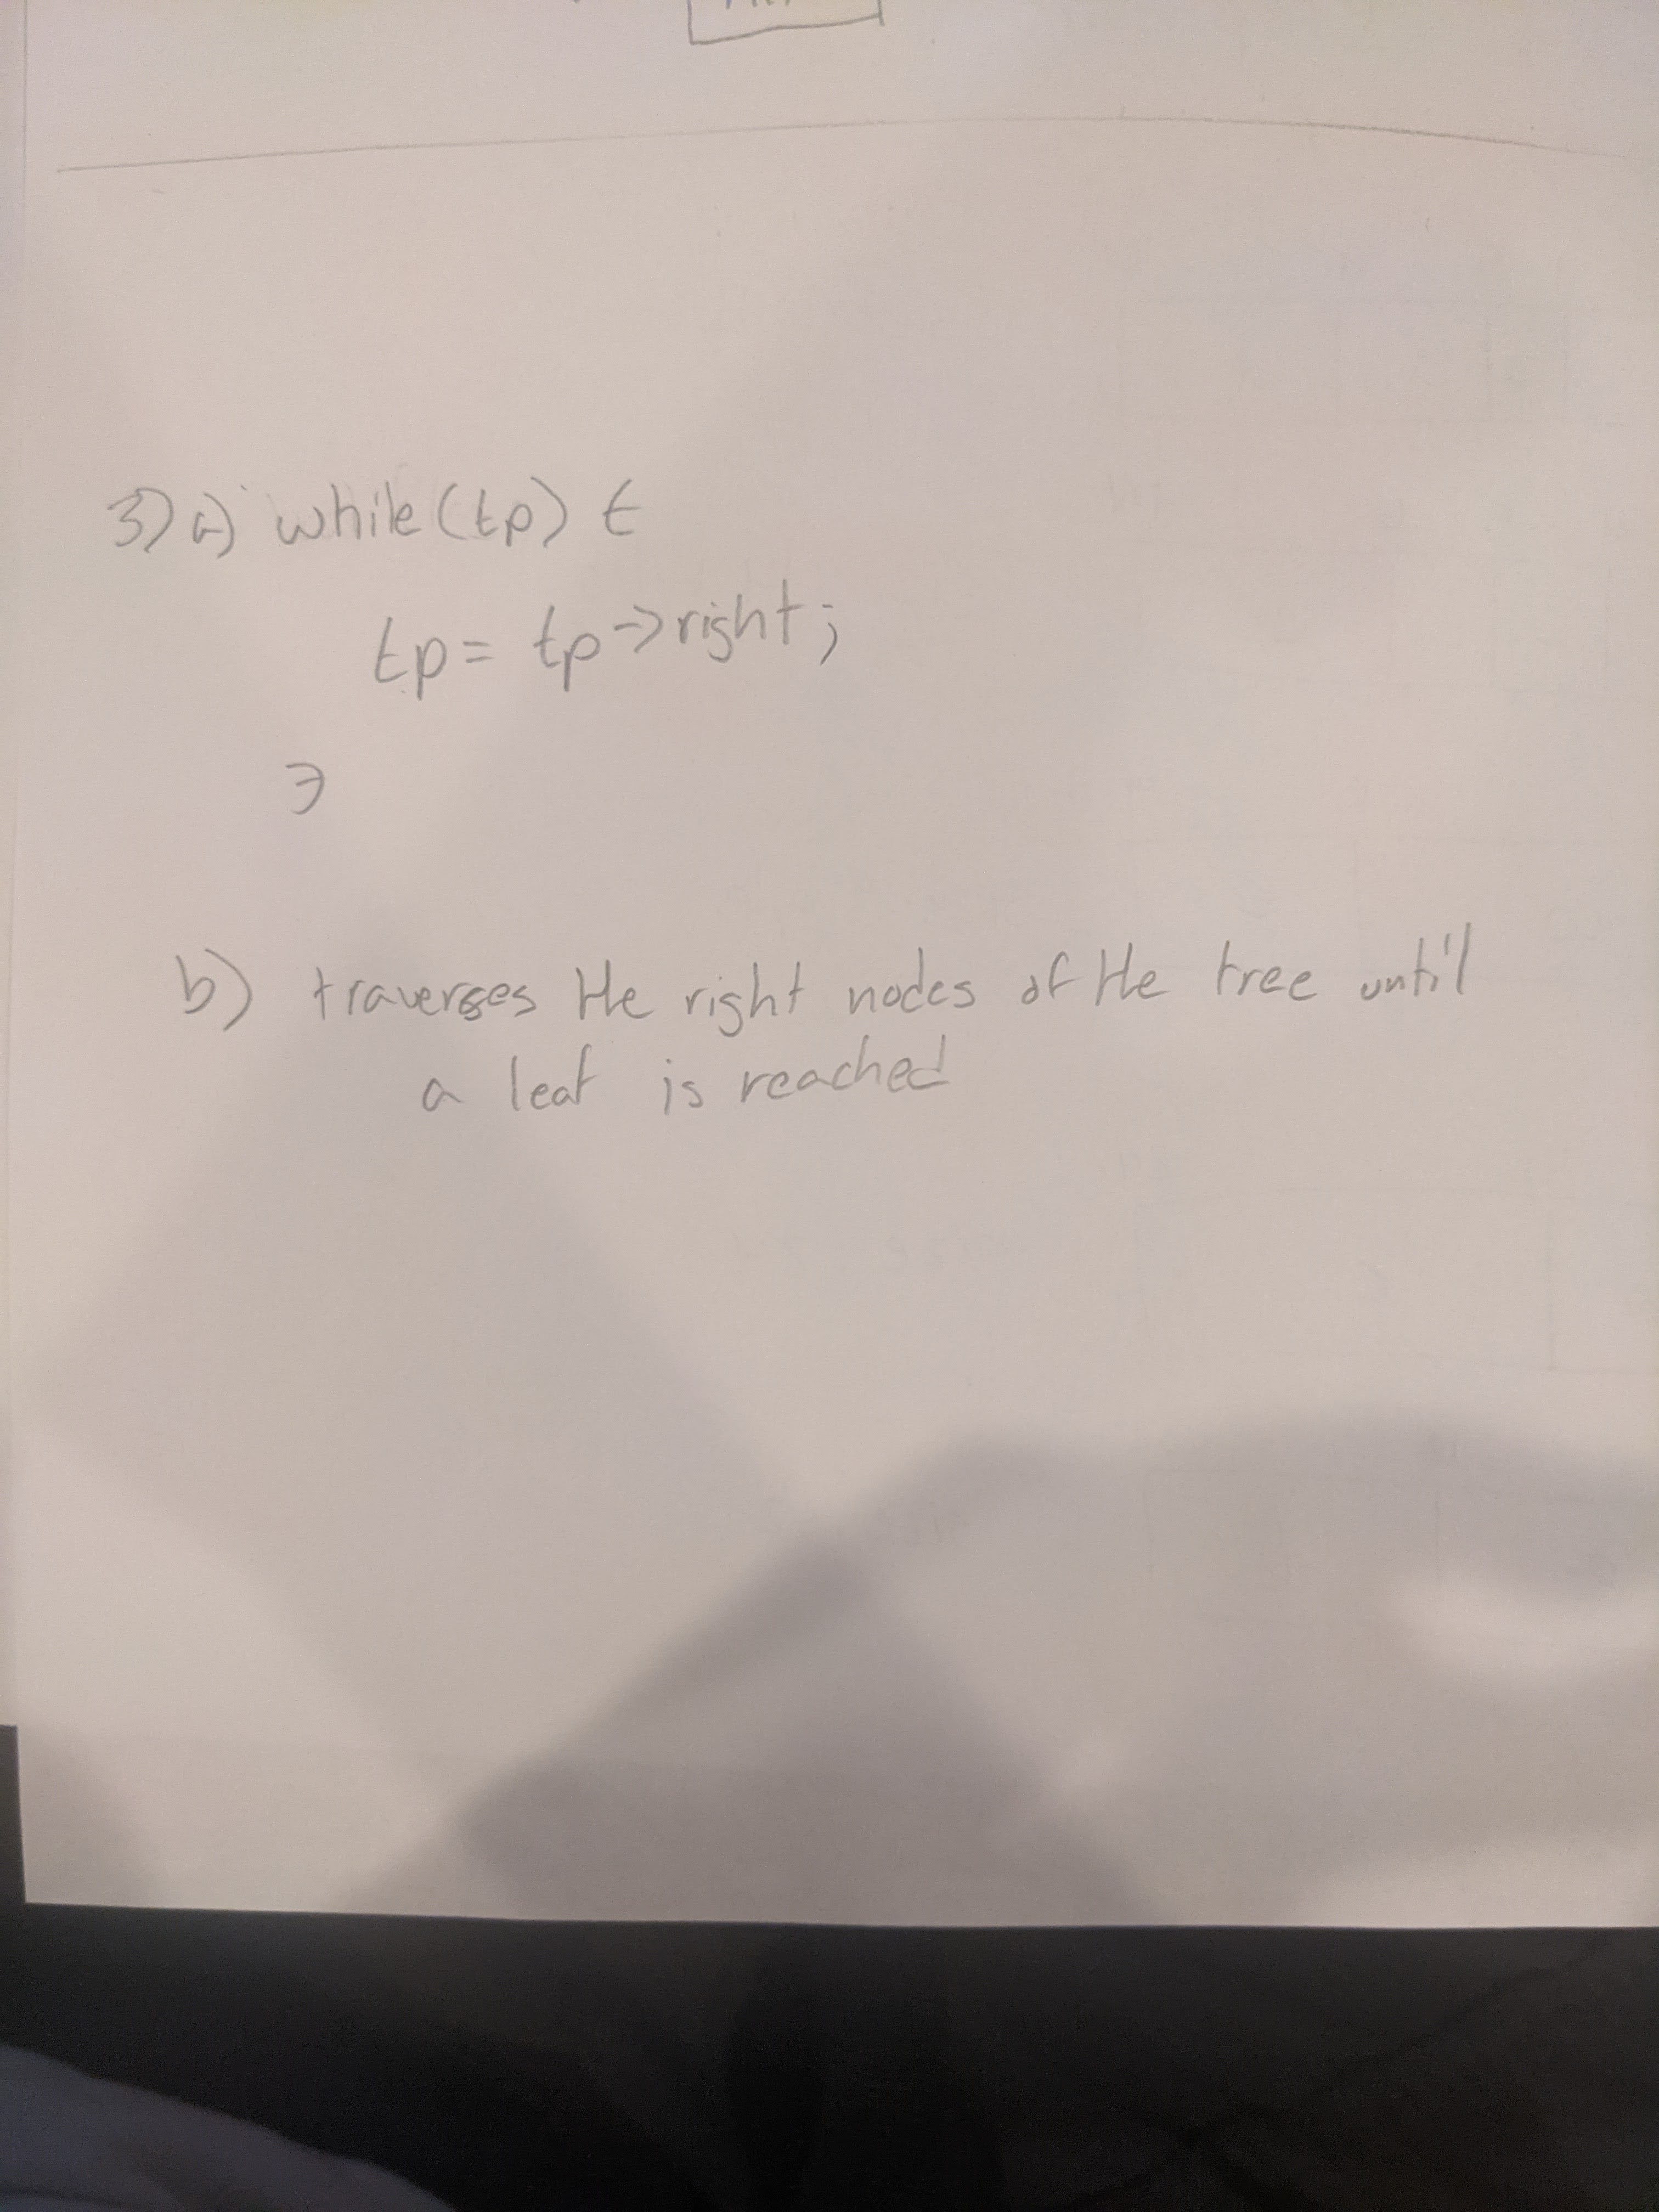 3) a) while(tp) {
tp = tp->right;
}
b) traverses the right nodes of the tree until
a leaf is reached